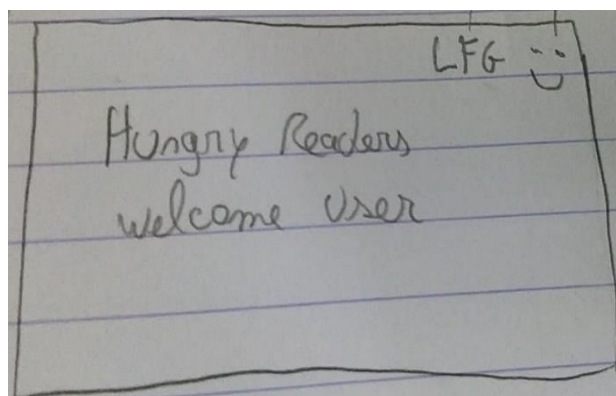 LFG
Hungry Readers
welcome user